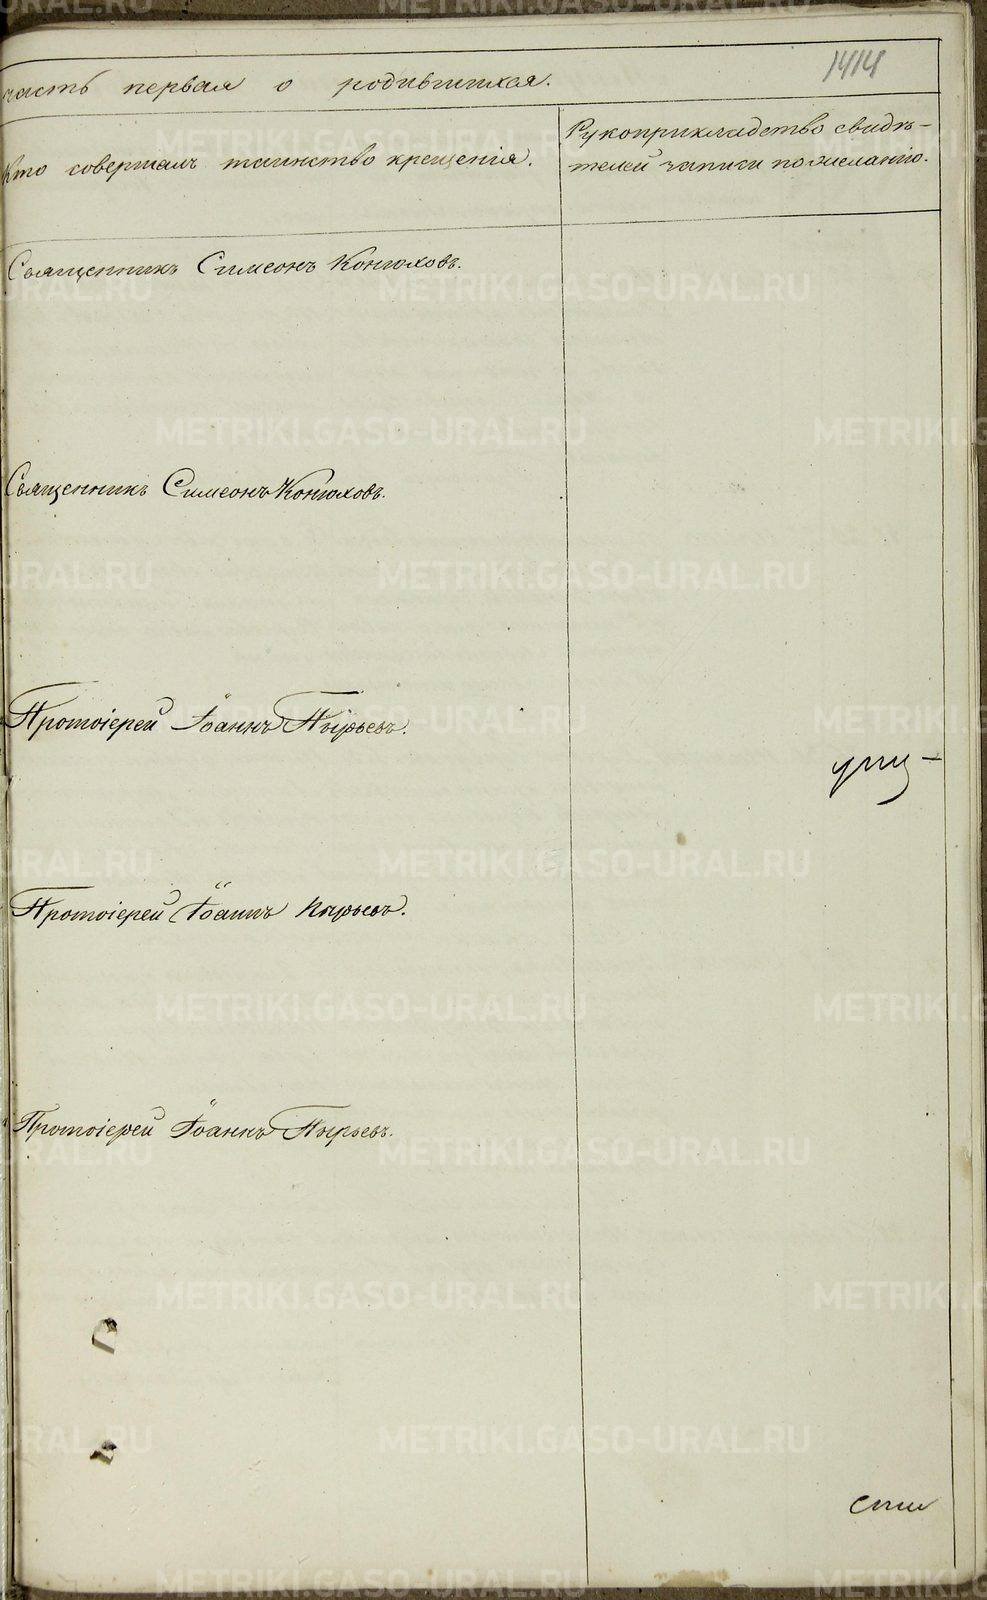 1414
часть первая о родившихся.
Кто совершалъ таинство крещенія.
Рукоприкладство свидѣ-
телей записи по желанію.
Священникъ Симеонъ Конюховъ.
Священникъ Симеонъ Конюховъ.
Протоіерей Іоаннъ Пырьевъ.
Протоіерей Іоаннъ Пырьевъ.
Протоіерей Іоаннъ Пырьевъ.
METRIKI.GASO-URAL.RU